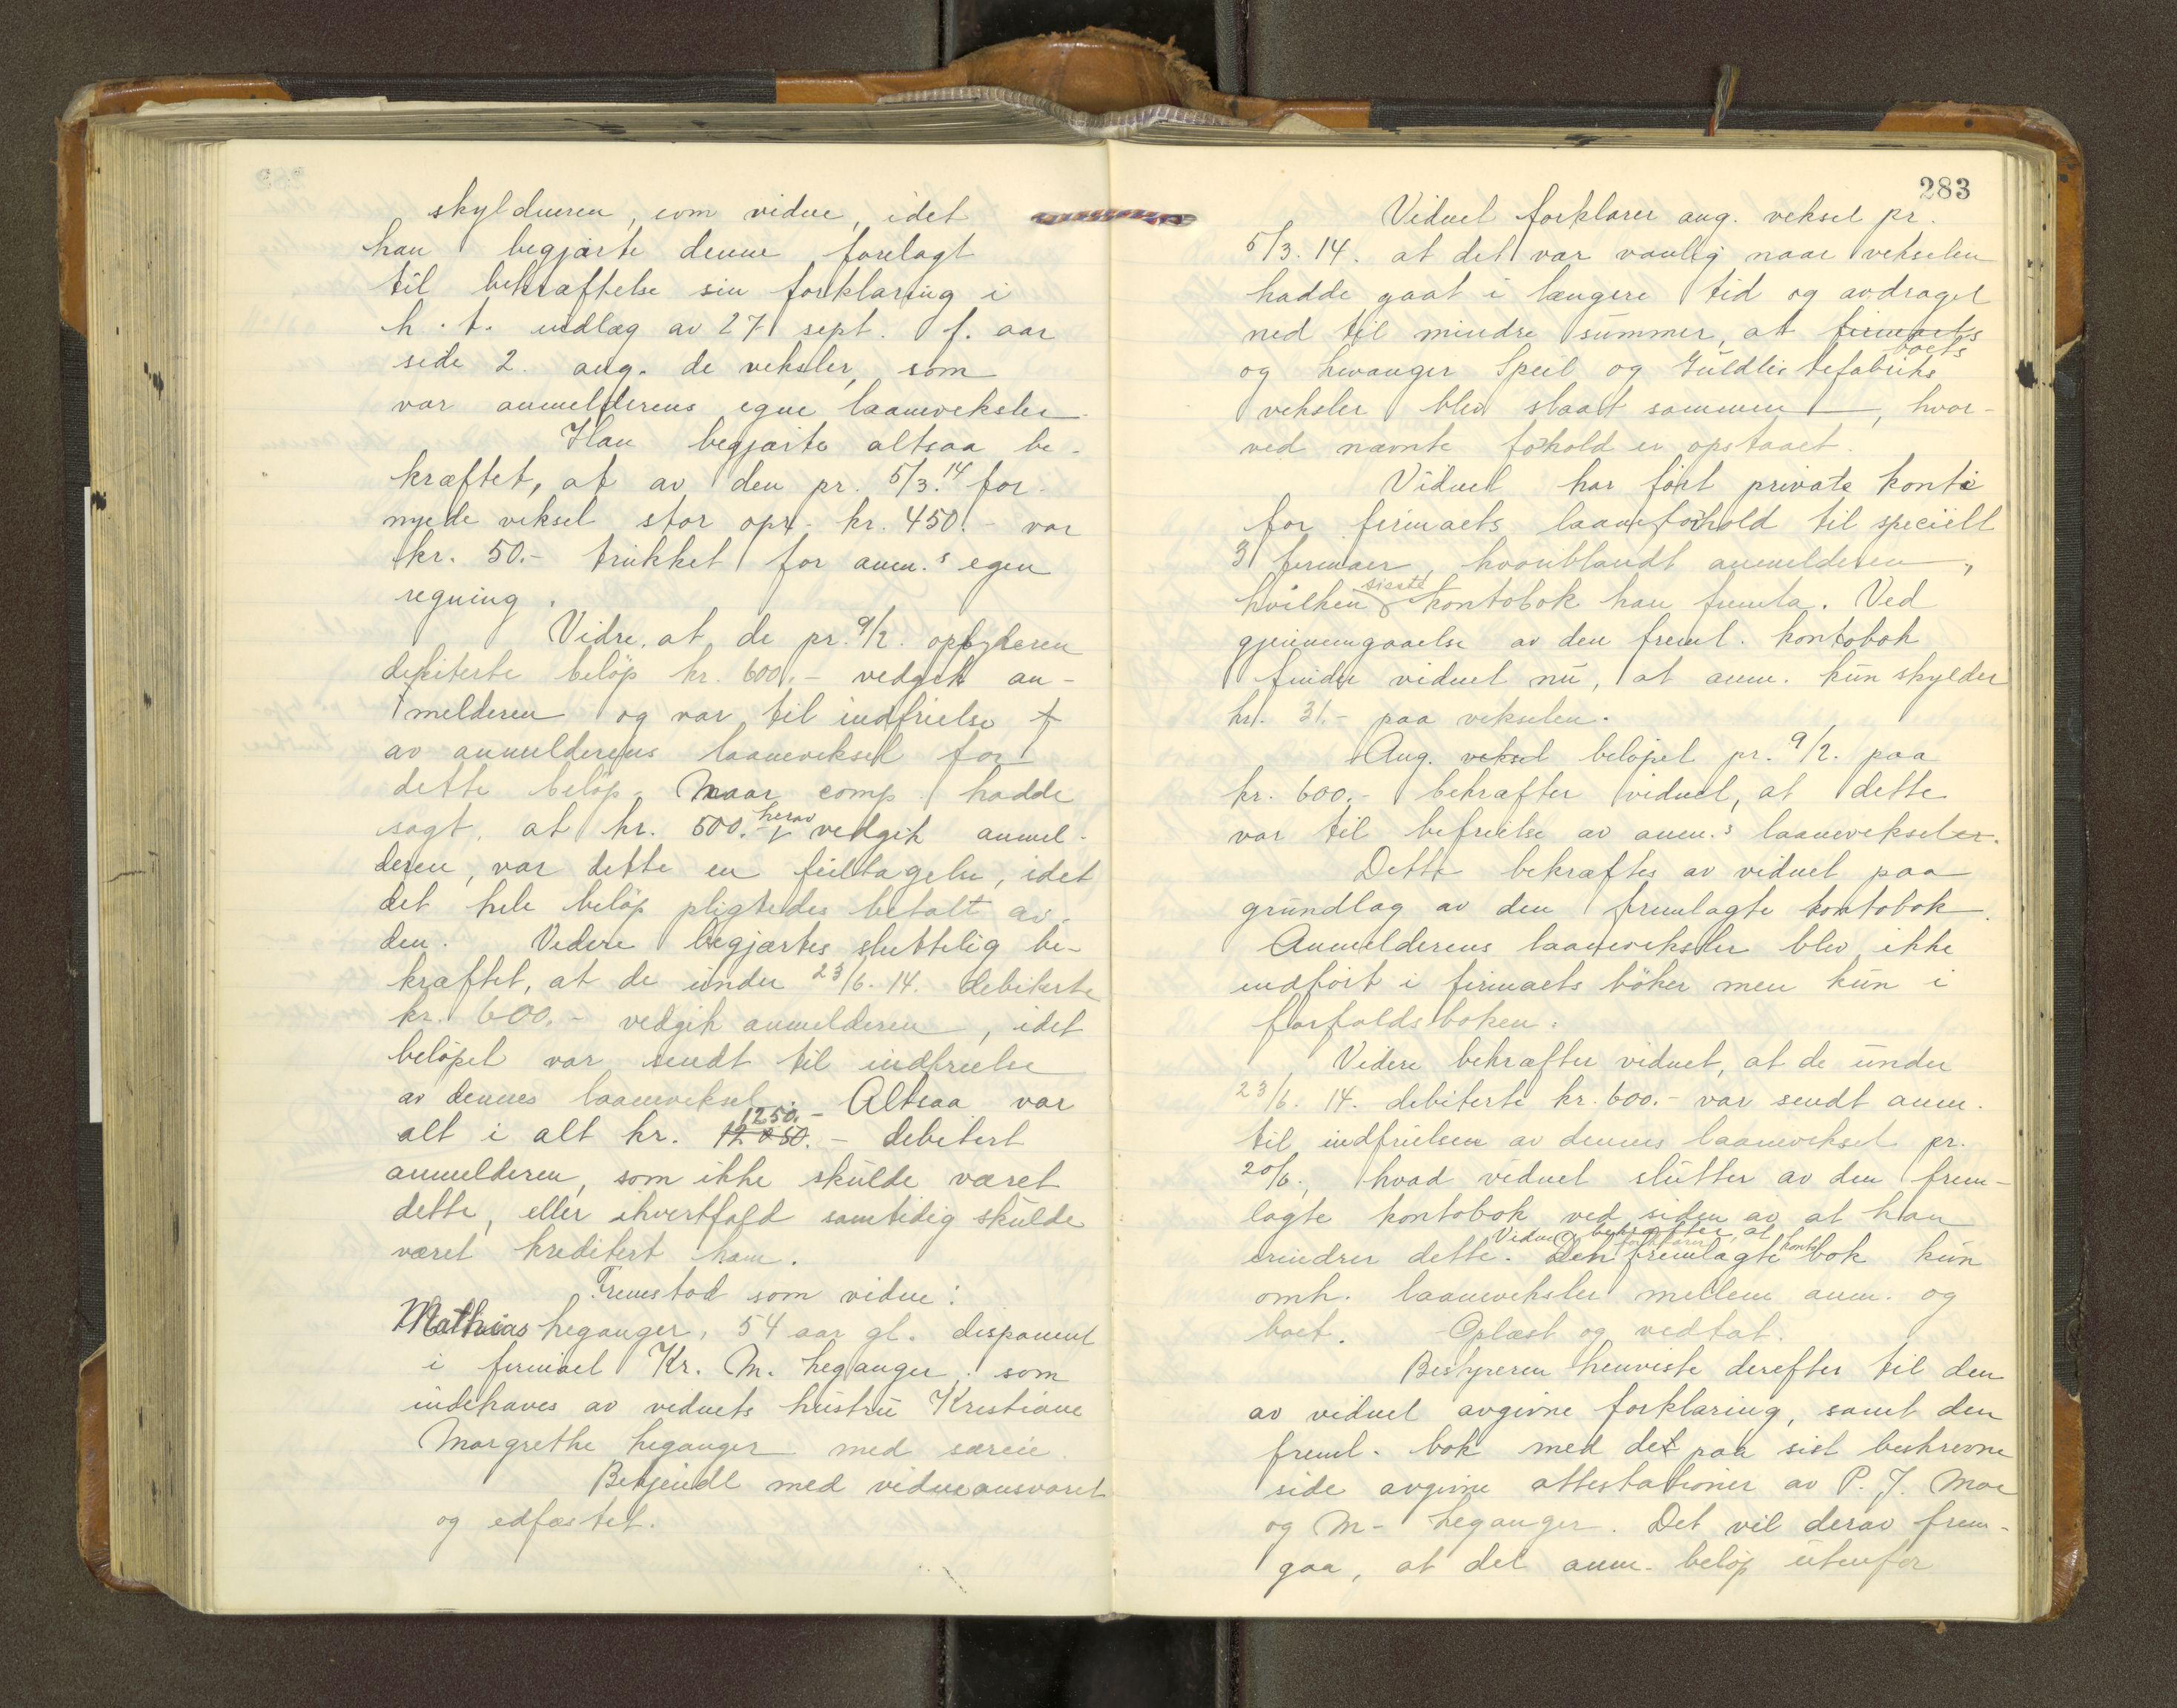 skyldneren, som vidne, idet
han begjærte denne forelagt
til bekræftelse sin forklaring i
h. t. indlæg av 27 sept. f. aar
side 2. ang. de veksler, som
var anmelderens egne laaneveksler.
Han begjærte altsaa be-
kræftet, at av den pr. 5/3. 14 for-
nyede veksel stor opr. kr. 450.- var
kr. 50.- trukket for anm.s egen
regning.
Vidre, at de pr. 9/2.
debiterte beløp kr. 600.- vedgik an-
melderen og var til indfrielse
av anmelderens laaneveksel for
dette beløp. Naar comp. hadde
sagt, at kr. 500.- herav vedgik anmel-
deren, var dette en feiltagelse, idet
det hele beløp pligtedes betalt av
den. Videre begjærtes sluttelig be-
kræftet, at de under 23/6. 14. debiterte
kr. 600.- vedgik anmelderen, idet
beløpet var sendt til indfrielse
av dennes laaneveksel. Altsaa var
alt i alt kr. 1250.- debitert
anmelderen, som ikke skulde været
dette, eller ihvertfald samtidig skulde
været kreditert ham.
Fremstod som vidne:
Mathias Leganger, 54 aar gl. disponent
i firmaet Kr. M. Leganger, som
indehaves av vidnets hustru Kristiane
Margrethe Leganger med særeie.
Bekjendt med vidneansvaret
og edfæstet.
283
Vidnet forklarer ang. veksel pr.
5/3. 14. at det var vanlig naar vekselen
hadde gaat i længere tid og avdraget
ned til mindre summer, at firmaets
boets
og Levanger Speil og Guldlistefabriks
veksler blev slaat sammen, hvor-
ved nævnte forhold er opstaaet.
Vidnet har ført private konti
for firmaets laaneforhold til specielt
3 firmaer, hvoriblandt anmelderen,
hvilken sidste kontobok han fremla. Ved
gjennemgaaelse av den freml. kontobok
finder vidnet nu, at anm. kun skylder
kr. 31.- paa vekselen.
Ang. veksel beløpet pr. 9/2. paa
kr. 600.- bekræfter vidnet, at dette
var til befrielse av anm.s laaneveksler.
Dette bekræftes av vidnet paa
grundlag av den fremlagte kontobok.
Anmelderens laaneveksler blev ikke
indført i firmaets bøker men kun i
forfaldsboken.
Videre bekræfter vidnet, at de under
23/6. 14. debiterte kr. 600.- var sendt anm.
til indfrielsen av dennes laaneveksel pr.
20/6., hvad vidnet slutter av den frem-
lagte kontobok ved siden av at han
Vidnet bekræfter, at
erindrer dette. Den fremlagte kontobok kun
omh. laaneveksler mellem anm. og
boet. Oplæst og vedtat.
Bestyreren henviste derefter til den
av vidnet avgivne forklaring, samt den
freml. bok med det paa sist beskrevne
side avgivne attestationer av P. J. Moe
og M. Leganger. Det vil derav frem-
gaa, at det anm. beløp utenfor